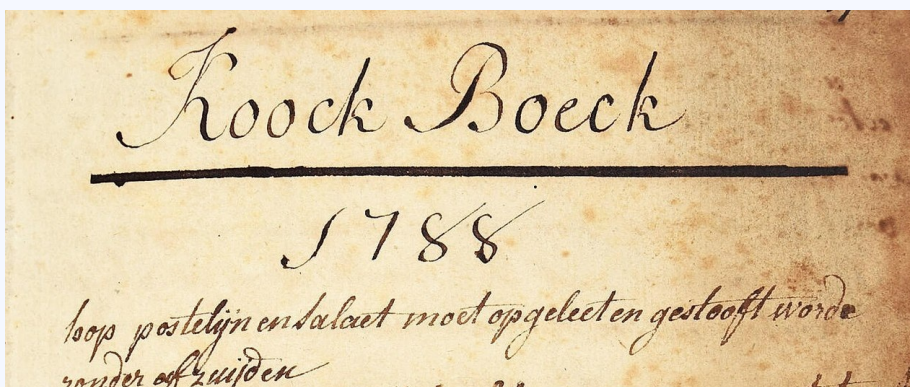 Koock Boeck
1788
hop postelijn en salaet moet opgeleet en gestooft worde
zonder af zuijden